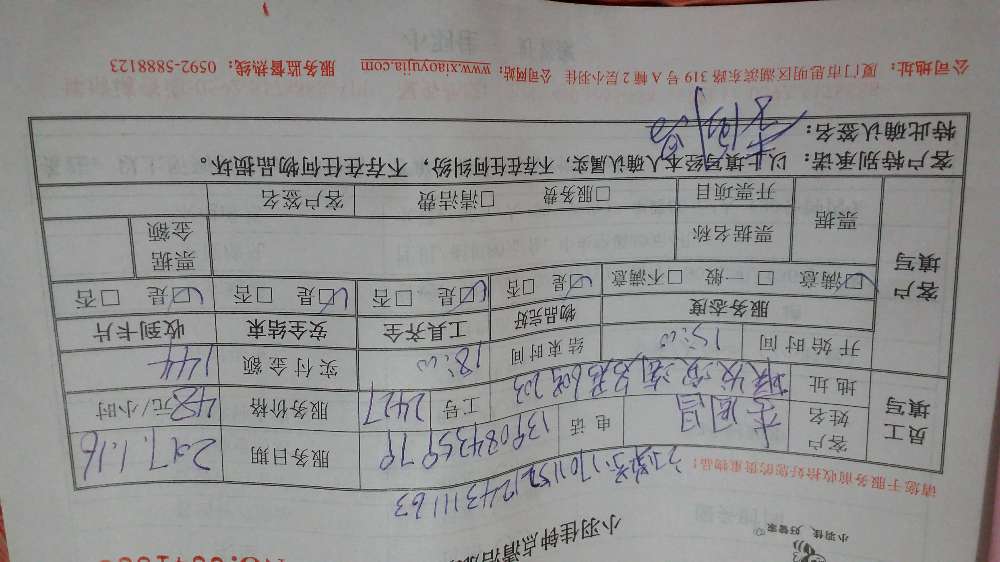 小羽佳,好管家
小羽佳钟点清洁
请您于服务前收拾好您的贵重物品:
1701152124311163
员工填写
客户姓名
电话 13908435979
服务日期 2017.1.16
工号 2427
服务价格 48元/小时
地址
开始时间 15:00
结束时间 18:00
实付金额 144
客户填写
服务态度 物品完好 工具齐全 安全结束 收到卡片
☑满意 □一般 □不满意 ☑是 □否 ☑是 □否 ☑是 □否 ☑是 □否
票据 票据名称 票据金额
开票项目 □服务费 □清洁费 客户签名
客户特别承诺:以上填写经本人确认属实,不存在任何纠纷,不存在任何物品损坏。
特此确认签名:
公司地址:厦门市思明区湖滨东路319号A幢2层小羽佳 公司网站:www.xiaoyujia.com 服务监督热线:0592-5888123